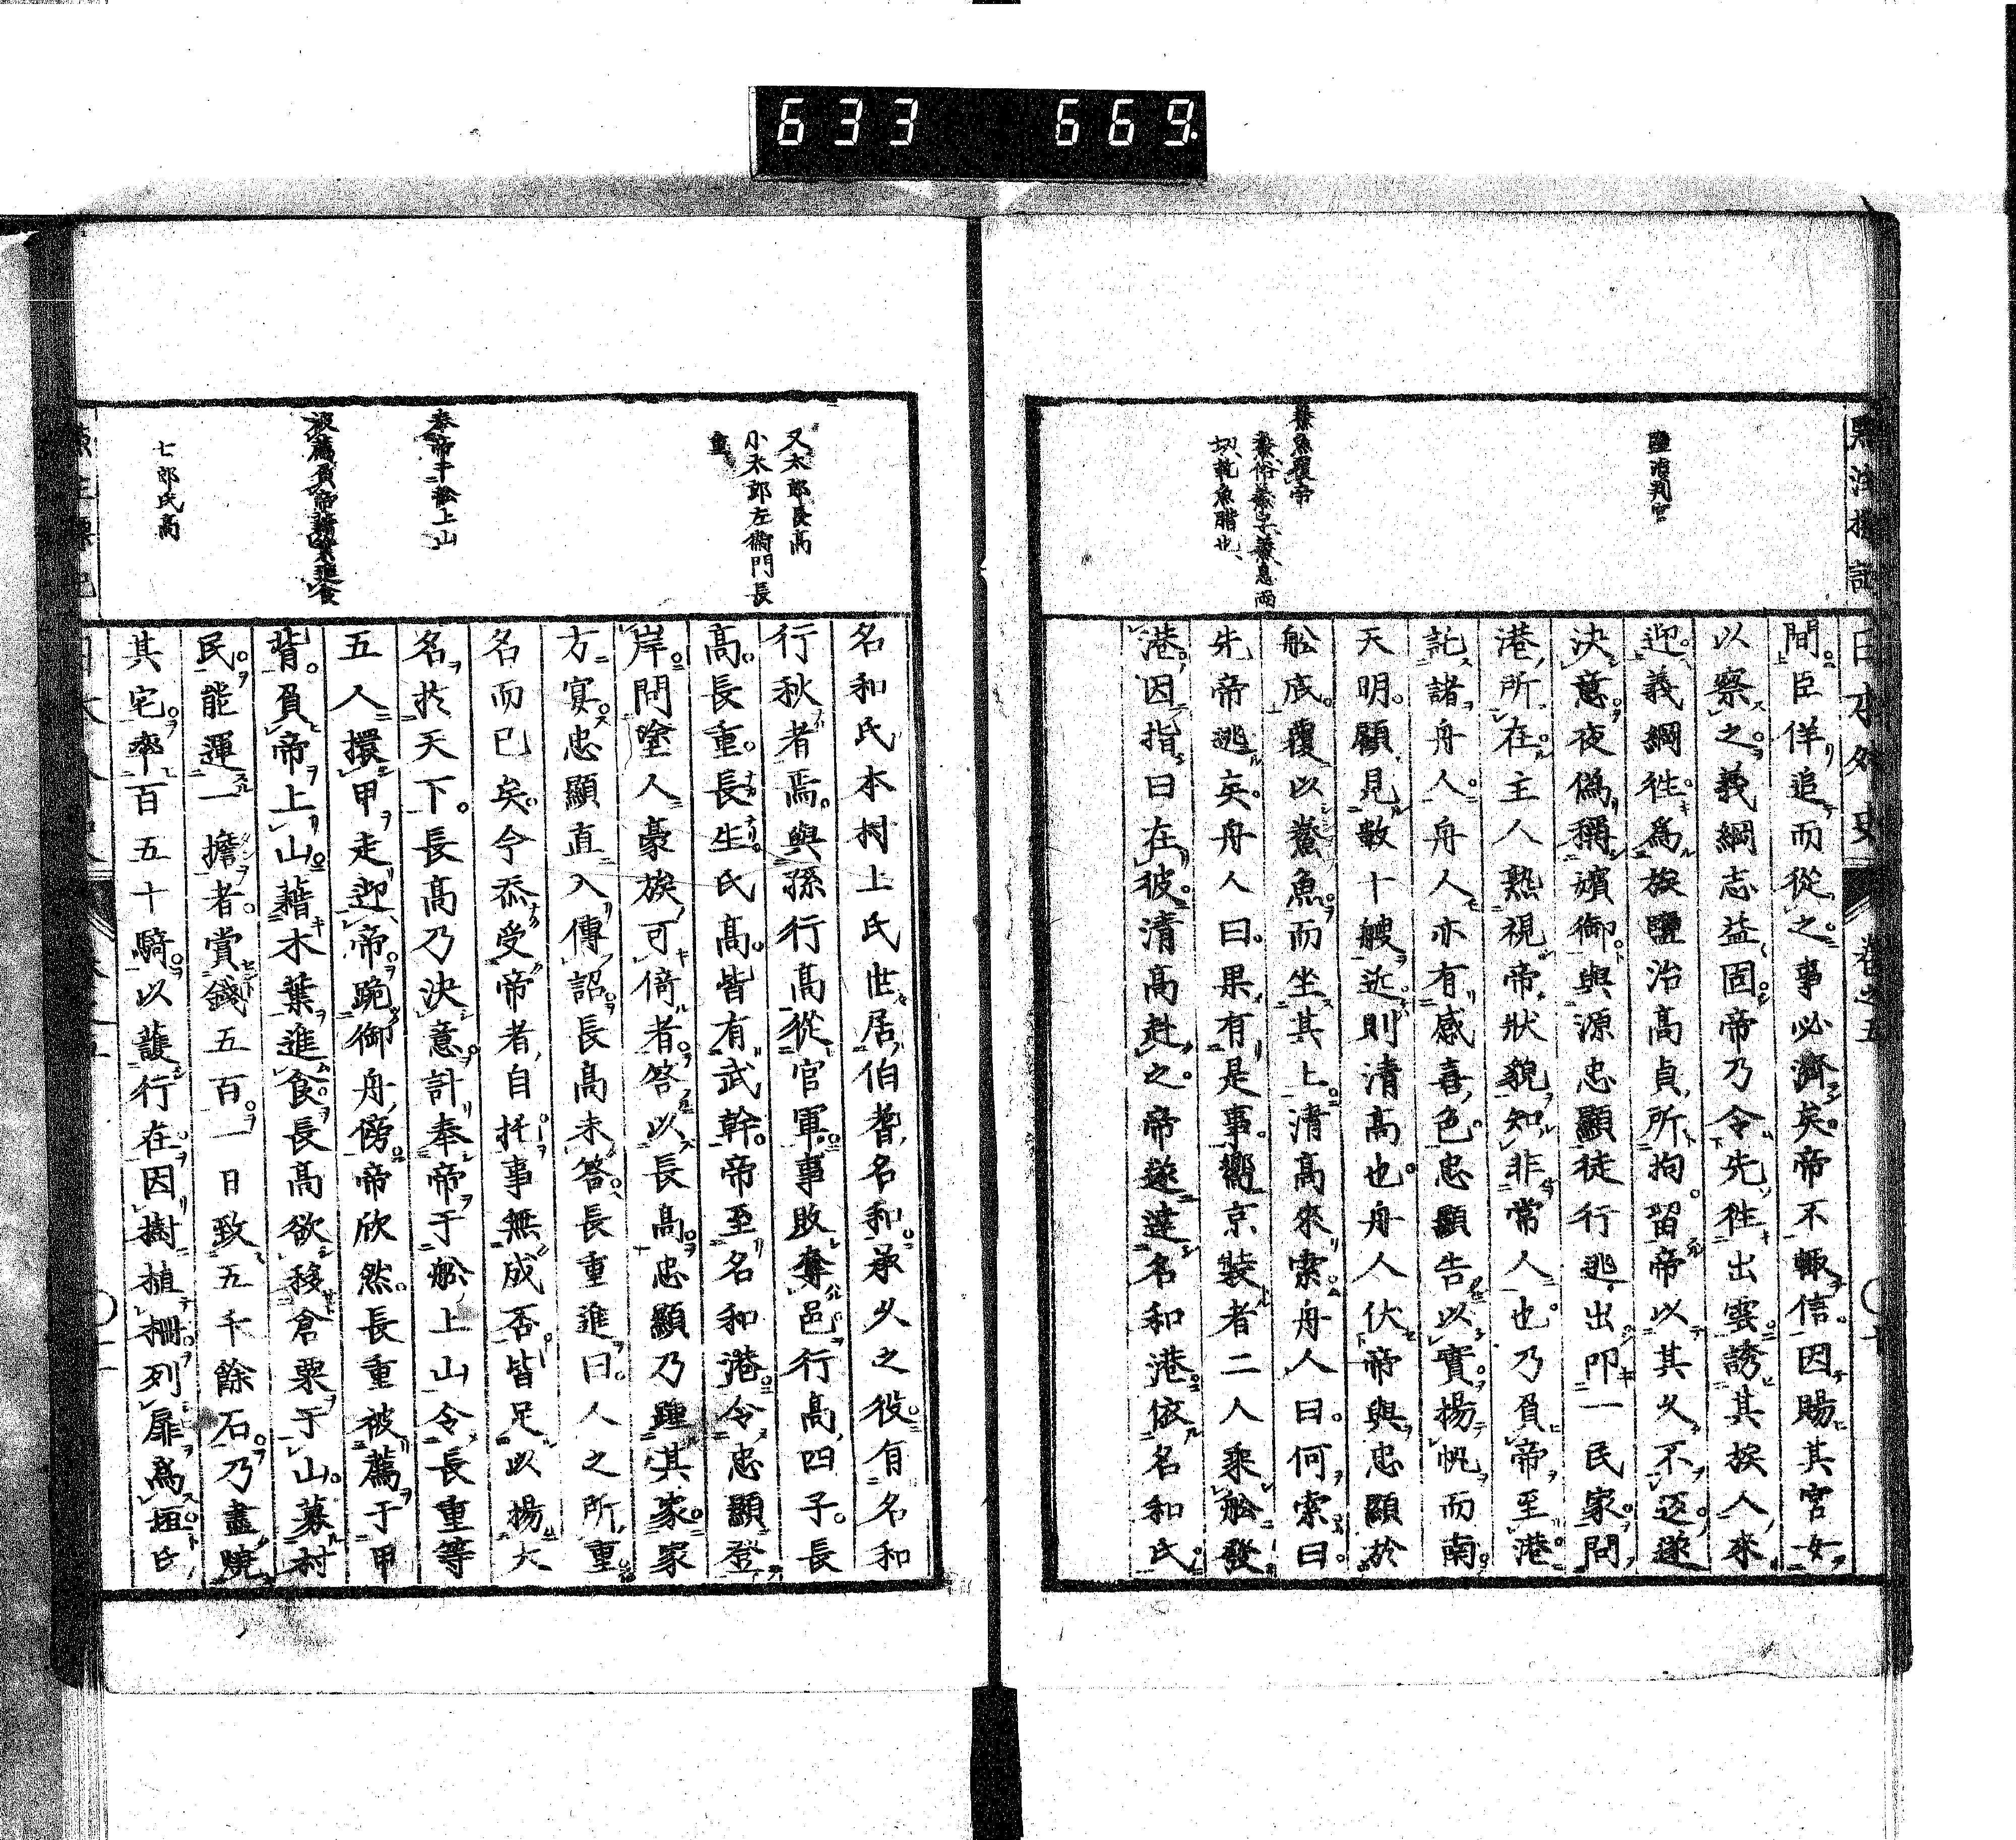 633 669.
日本外史 卷之五
鹽冶判官
鮝魚覆帝
切乾魚腊也、
間臣佯追而從之事必濟矣帝不輙信因賜其宮女
以察之義綱志益固帝乃令先徃出雲誘其挨人來
迎義綱徃爲族鹽冶高貞所拘留帝以其久不返遂
決意夜偽稱嬪御與源忠顯徒行逃出叩一民家問
港所在主人熟視帝狀貌知非常人也乃負帝至港
託諸舟人舟人亦有感喜色忠顯告以實揚帆而南
天明顧見數十艘近則清高也舟人伏帝與忠顯於
舩底覆以鮝魚而坐其上清高來索舟人曰何索曰
先帝逃矣舟人曰果有是事嚮京裝者二人乘舩發
港因指曰在彼清高赴之帝遂達名和港依名和氏
又太郎長高
小太郎左衞門長
重
奉帝于舩上山
被薦負帝藉葉進食
七郎氏高
名和氏本村上氏世居伯耆名和承久之役有名和
行秋者焉與孫行高從官軍事敗奪邑行高四子長
高長重長生氏高皆有武幹帝至名和港令忠顯登
岸問塗人豪族可倚者答以長高忠顯乃踵其家家
方宴忠顯直入傳詔長高未答長重進曰人之所重
名而已矣今忝受帝者自托事無成否皆足以揚大
名於天下長高乃決意計奉帝于舩上山令長重等
五人擐甲走迎帝跪御舟傍帝欣然長重被薦于甲
背負帝上山藉木葉進食長高欲移倉粟于山募村
民能運一擔者賞錢五百一日致五千餘石乃盡燒
其宅率百五十騎以護行在因樹植柵列扉爲垣氏